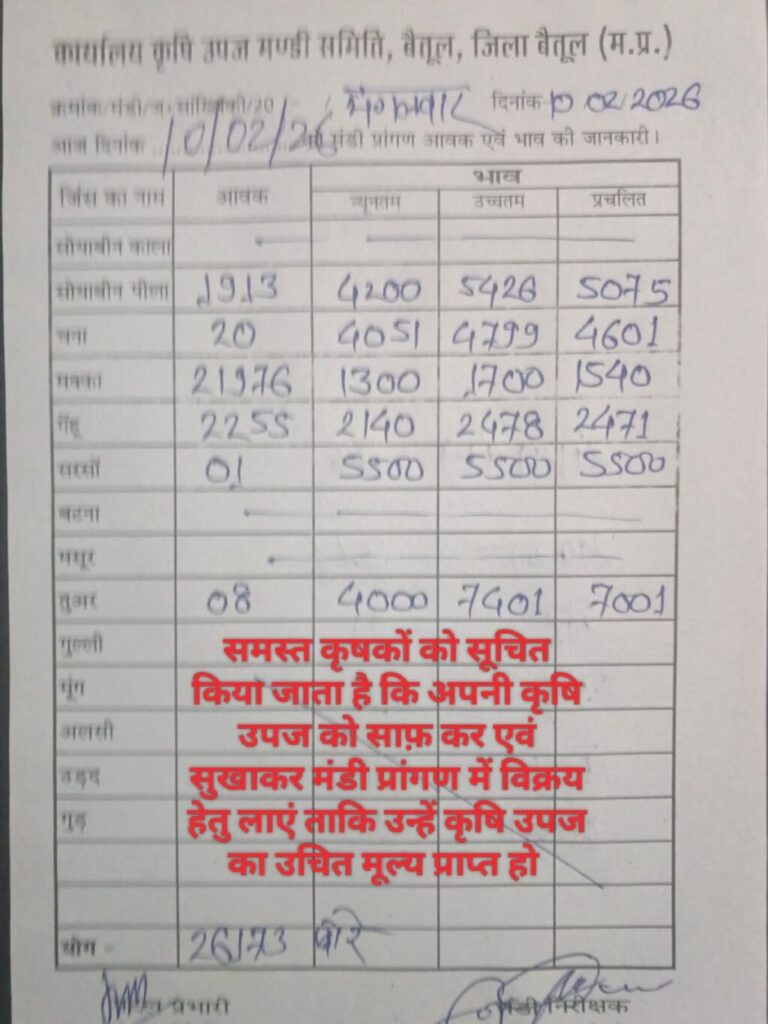 कार्यालय कृषि उपज मण्डी समिति, बैतूल, जिला बैतूल (म.प्र.)
क्रमांक/मंडी/ /20 मंगलवार दिनांक 10/02/2026
आज दिनांक 10/02/26 को मंडी प्रांगण आवक एवं भाव की जानकारी।
जिंस का नाम आवक भाव
न्यूनतम उच्चतम प्रचलित
सोयाबीन काला
सोयाबीन पीला 1913 4200 5426 5075
चना 20 4051 4799 4601
मक्का 21976 1300 1700 1540
गेंहू 2255 2140 2478 2471
सरसों 01 5500 5500 5500
बटना
मसूर
तुअर 08 4000 7401 7001
गुल्ली
मूंग
अलसी
उड़द
गुड़
समस्त कृषकों को सूचित
किया जाता है कि अपनी कृषि
उपज को साफ़ कर एवं
सुखाकर मंडी प्रांगण में विक्रय
हेतु लाएं ताकि उन्हें कृषि उपज
का उचित मूल्य प्राप्त हो
योग 26173 बोरे
प्रभारी मंडी निरीक्षक